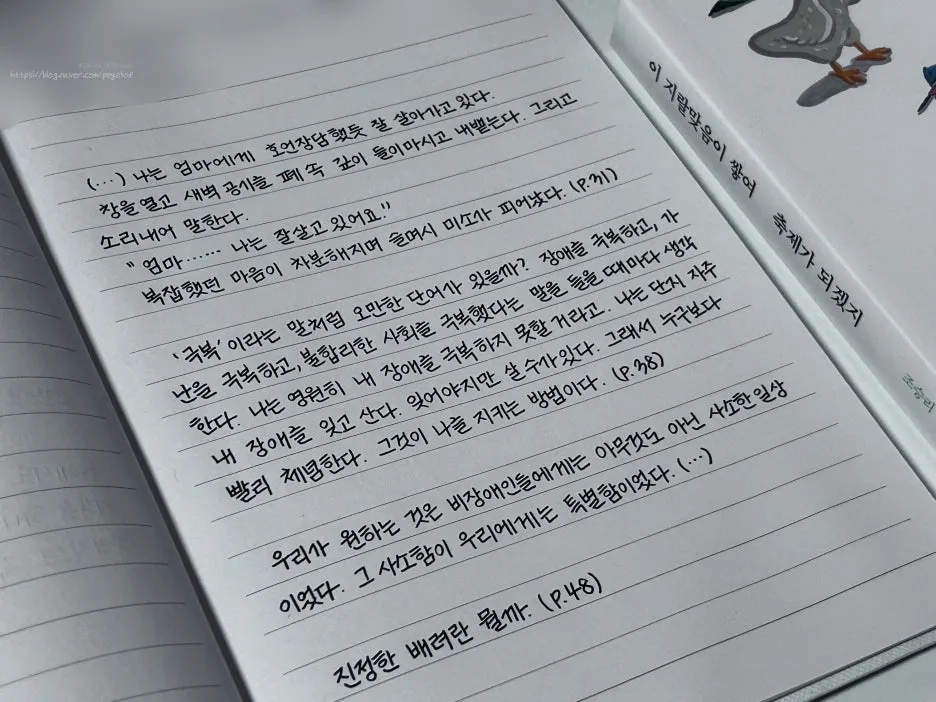 https://blog.naver.com/pegosoe
(···) 나는 엄마에게 호언장담했듯 잘 살아가고 있다.
창을 열고 새벽 공기를 폐 속 깊이 들이마시고 내뱉는다. 그리고
소리내어 말한다.
"엄마······ 나는 잘살고 있어요."
복잡했던 마음이 차분해지며 슬며시 미소가 피어났다. (p.31)
'극복'이라는 말처럼 오만한 단어가 있을까? 장애를 극복하고, 가
난을 극복하고, 불합리한 사회를 극복했다는 말을 들을 때마다 생각
한다. 나는 영원히 내 장애를 극복하지 못할 거라고. 나는 단지 자주
내 장애를 잊고 산다. 잊어야지만 살 수가 있다. 그래서 누구보다
빨리 체념한다. 그것이 나를 지키는 방법이다. (p.38)
우리가 원하는 것은 비장애인들에게는 아무것도 아닌 사소한 일상
이었다. 그 사소함이 우리에게는 특별함이었다. (···)
진정한 배려란 뭘까. (p.48)
이 지랄맞음이 쌓여 축제가 되겠지
조승리